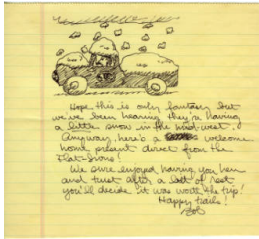 Hope this is only fantasy but
we've been hearing they're having
a little snow in the mid-west.
Anyway, here's a welcome
home present direct from the
Flat-Irons!
We sure enjoyed having you here
and trust after a bit of rest
you'll decide it was worth the trip!
Happy trails!
Bob